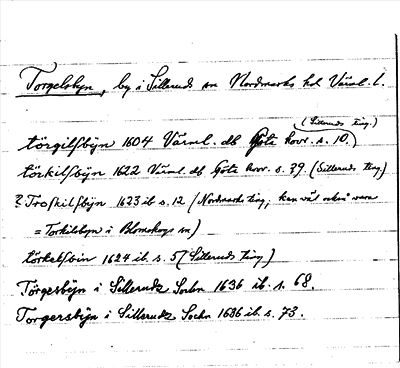 Torgelsbyn, by i Sillerud sn Nordmarks hd Värml. l.
(Silleruds ting.)
törgilsbÿn 1604 Värml. db Göta hovr. s. 10.
törkilsbÿn 1622 Värml. db Göta hovr. s. 79. (Silleruds ting)
? Troskilsbÿn 1623 ib s. 12 (Nordmarks ting; kan väl också vara
= Torkilsbyn i Blomskogs sn)
törkelsbin 1624 ib. s. 57 (Silleruds ting)
Törgesbÿn i Sillerudz Sochn 1636 ib. s. 68.
Torgersbÿn i Sillerudz Sochn 1636 ib. s. 73.